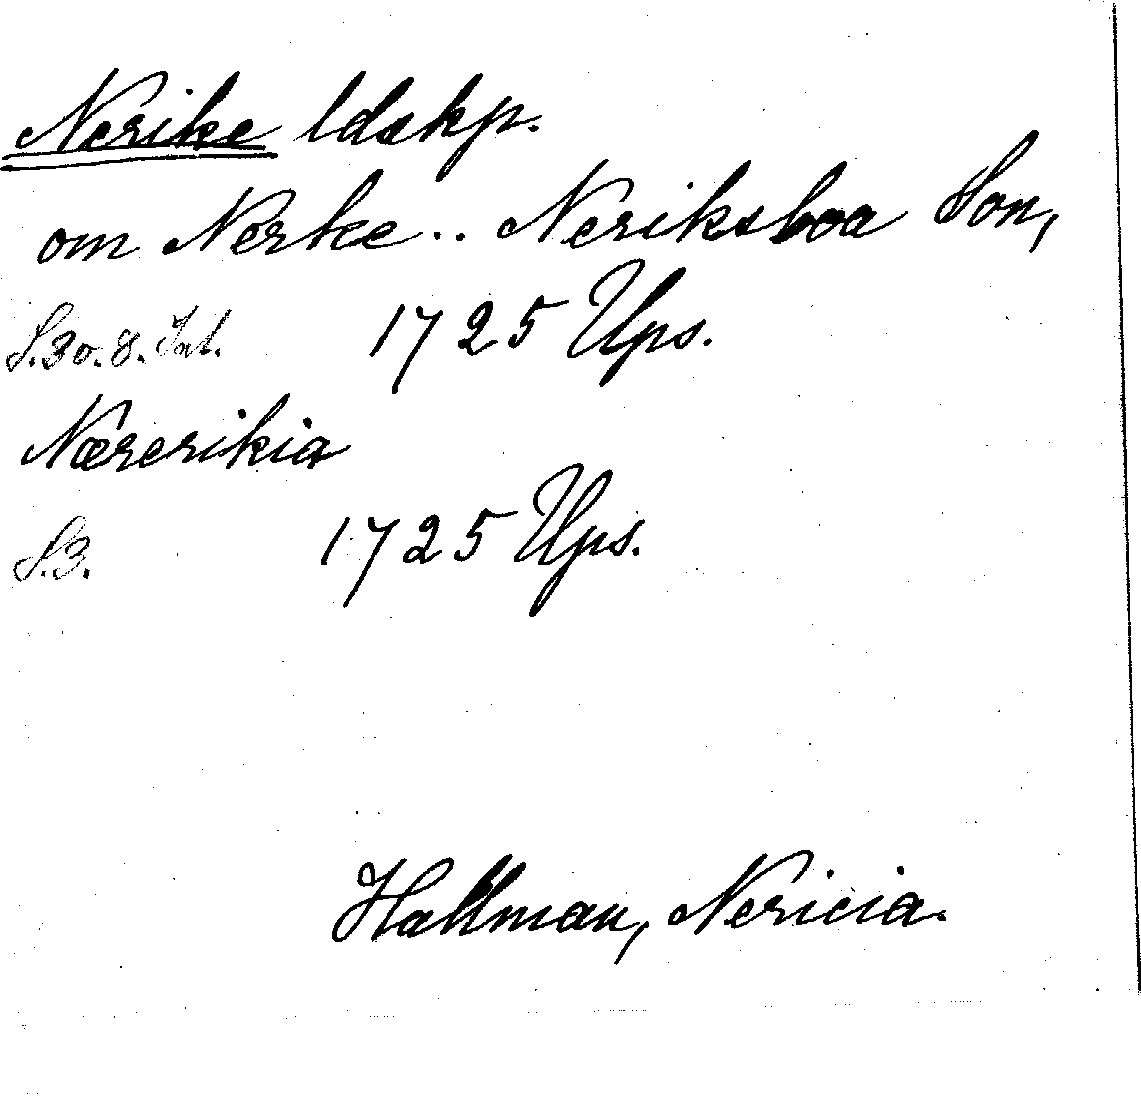 Nerike ldskp.
om Nerke.. Neriksboa Son,
S.30.8. Int. 1725 Ups.
Nærerikia
S.3. 1725 Ups.
Hallman, Nericia.